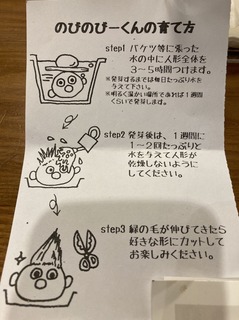 のびのびーくんの育て方
step1 バケツ等に張った
水の中に人形全体を
3〜5時間つけます。
※発芽するまでは毎日たっぷり水を
与えて下さい。
※明るく温かい場所であれば1週間
くらいで発芽します。
step2 発芽後は、1週間に
1〜2回たっぷりと
水を与えて人形が
乾燥しないように
してください。
step3 緑の毛が伸びてきたら
好きな形にカットして
お楽しみください。